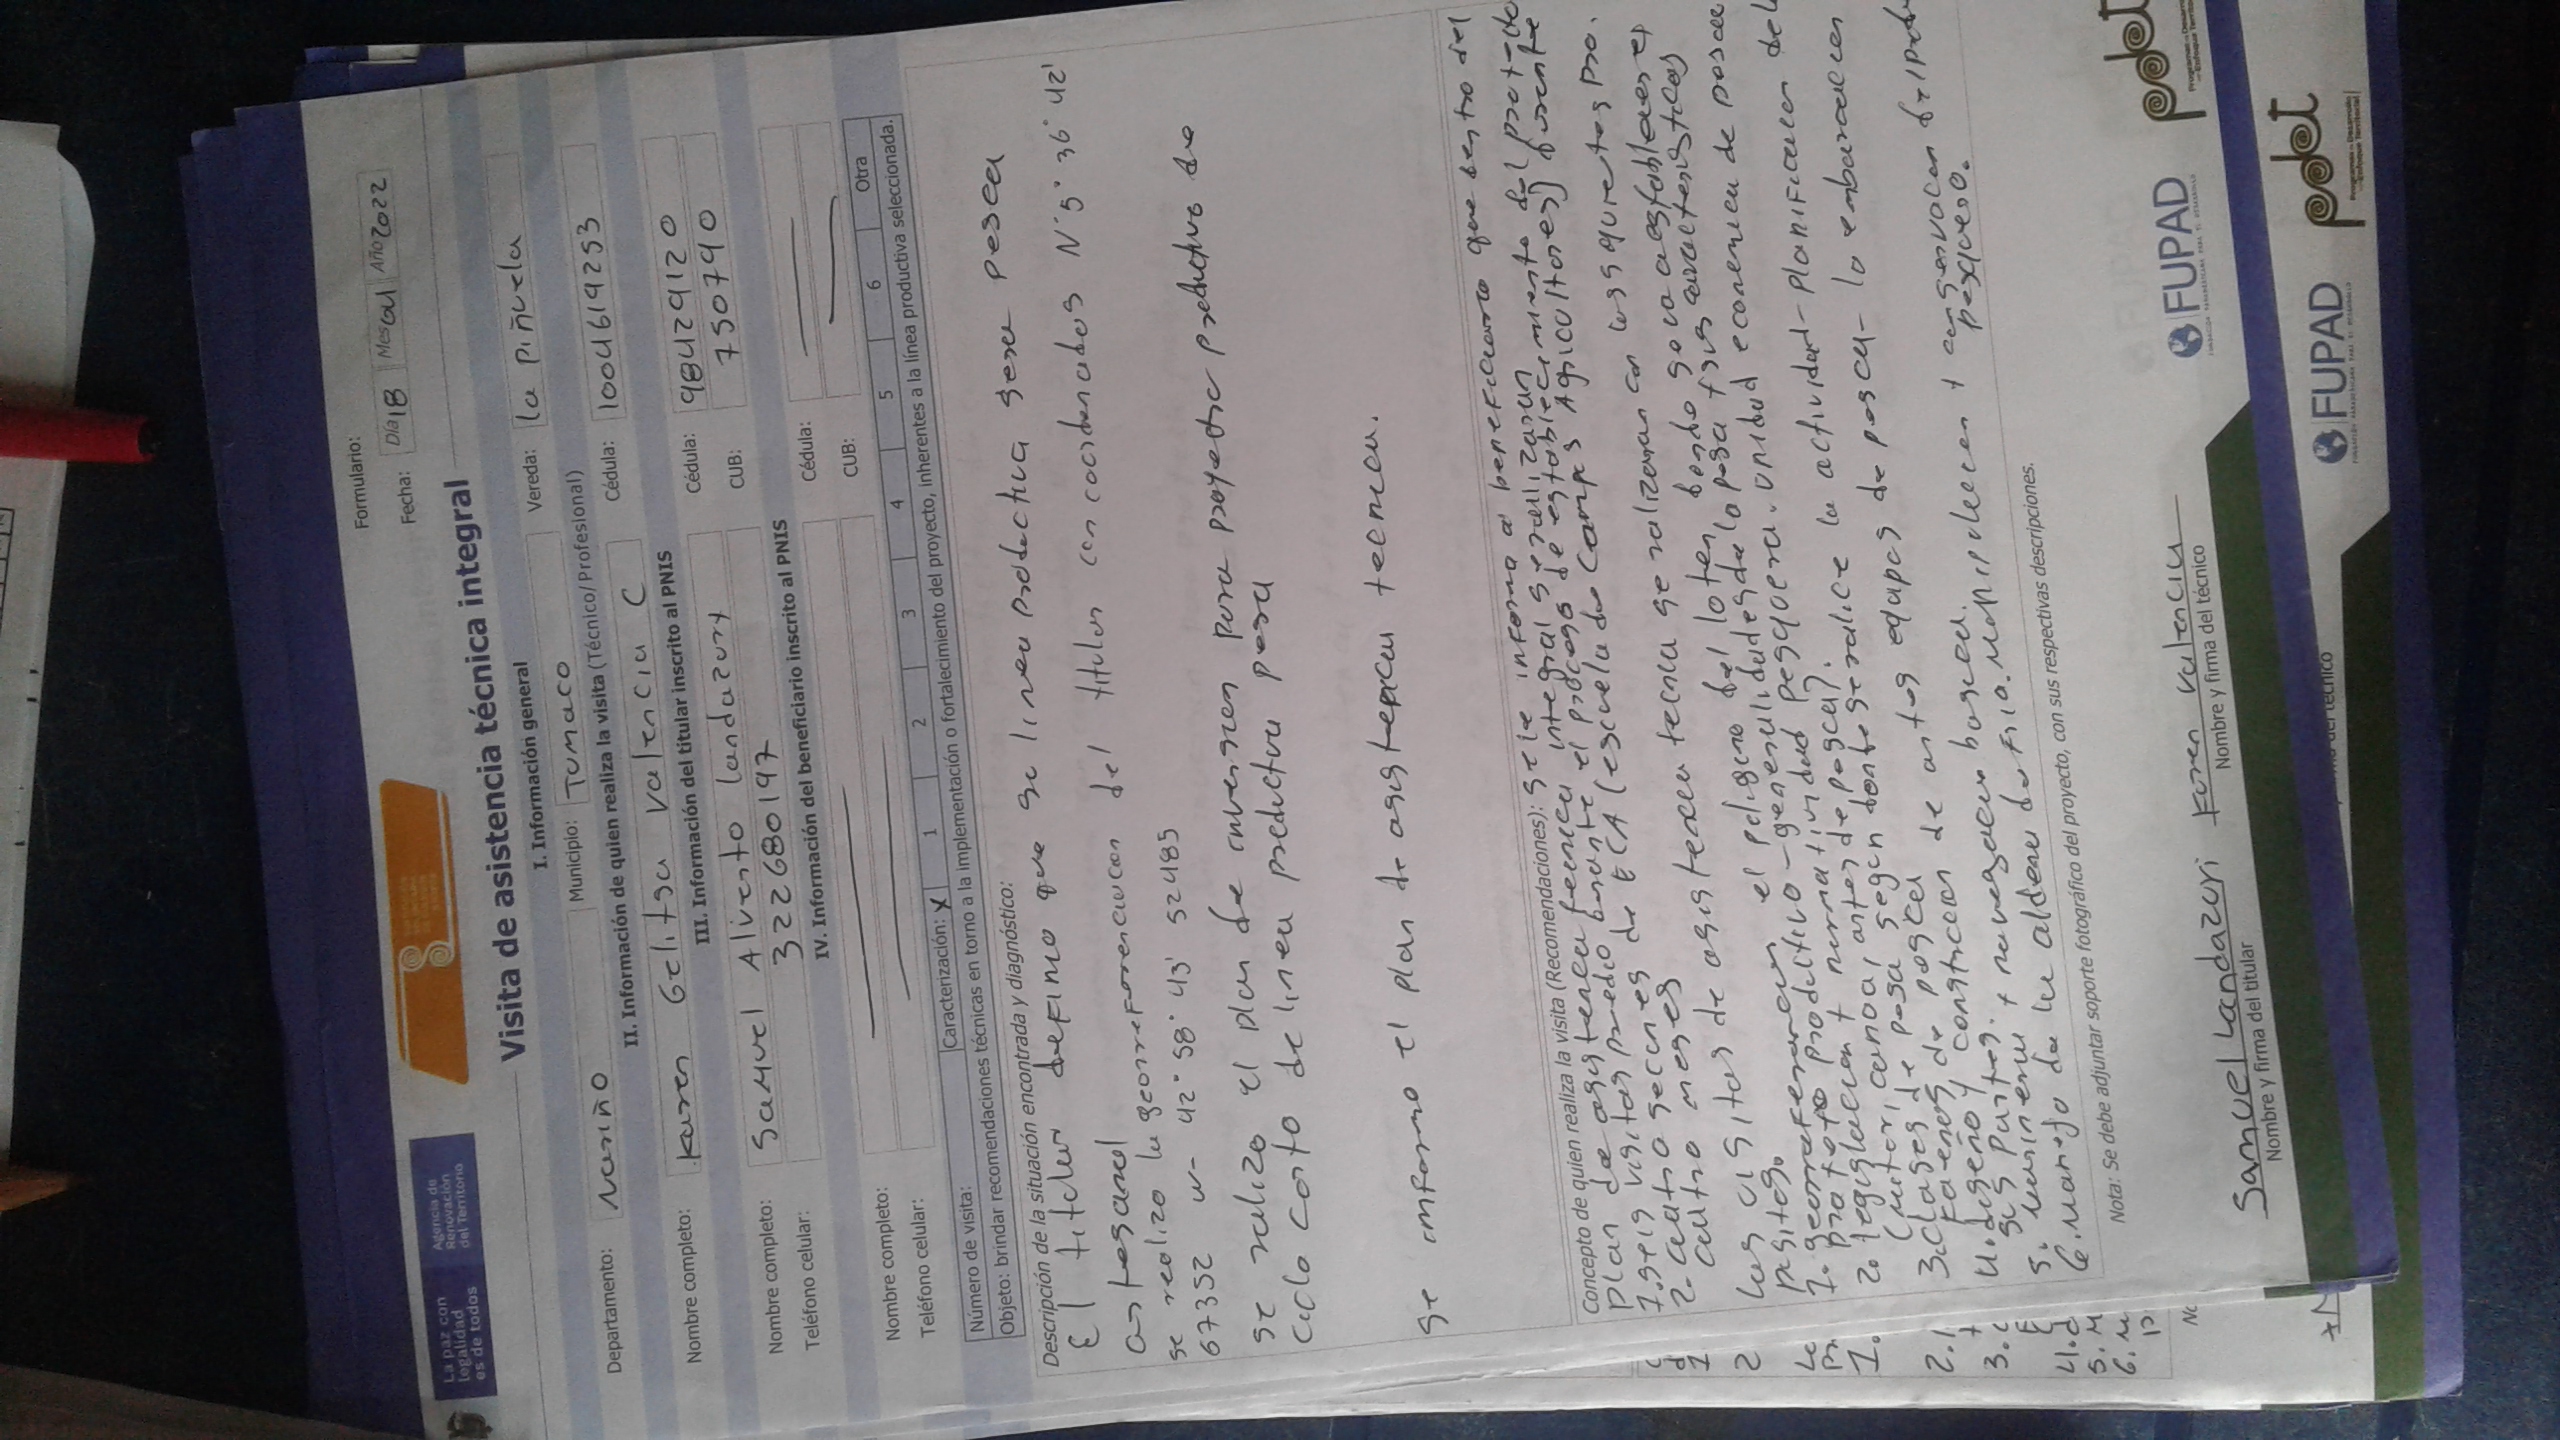 La paz con
legalidad
es de todos
Agencia de
Renovación
del Territorio
Formulario:
Fecha: Día 18 Mes 01 Año 2022
Visita de asistencia técnica integral
I. Información general
Departamento: Nariño Municipio: Tumaco Vereda: la piñuela
II. Información de quien realiza la visita (Técnico/Profesional)
Nombre completo: Karen Gelitsa Valencia C Cédula: 1004619253
III. Información del titular inscrito al PNIS
Nombre completo: Samuel Aliverto landazury Cédula: 98429120
Teléfono celular: 322680197 CUB: 750790
IV. Información del beneficiario inscrito al PNIS
Nombre completo: Cédula:
Teléfono celular: CUB:
Número de visita: Caracterización: X 1 2 3 4 5 6 Otra
Objeto: brindar recomendaciones técnicas en torno a la implementación o fortalecimiento del proyecto, inherentes a la línea productiva seleccionada.
Descripción de la situación encontrada y diagnóstico:
El titular definio que su linea productiva sera pesca
artesanal
se realizo la georreferenciacion del titular con coordenadas N 5° 36' 42'
67352 W- 42° 58' 43' 52485
se realizo el plan de inversion para proyecto productivo de
ciclo corto de linea productiva pesca
se informo el plan de asistencia tecnica.
Concepto de quien realiza la visita (Recomendaciones): se le informa al beneficiario que dentro del
plan de asistencia tecnica integral se realizaran
1. seis visitas predio durante el proceso de establecimiento del proyecto
2. cuatro secciones de ECA (escuela de campos Agricultores) durante
cuatro meses
las visitas de asistencia tecnica se realizaran con las siguientes pro.
positos.
1. georreferenciacion el poligono del lote donde se va a establecer el
proyecto productivo - generalidades de la pesca y sus caracteristicas
2. legislacion y normatividad pesquera. unidad economica de pesca
(motor, canoa, artes de pesca).
3. clases de pesca segun donde se realice la actividad - planificacion de la
faenas de pesca
4. diseño y construccion de artes equipos de pesca - la embarcacion
sus partes.
5. y navegacion basica.
6. manejo de la aldena de frio. manipulacion y conservacion de
pesquero.
Nota: Se debe adjuntar soporte fotográfico del proyecto, con sus respectivas descripciones.
Samuel landazuri
Nombre y firma del titular
Karen valencia
Nombre y firma del técnico
FUPAD
pdet
Programas de Desarrollo
con Enfoque Territorial
FUPAD
pdet
Programas de Desarrollo
con Enfoque Territorial